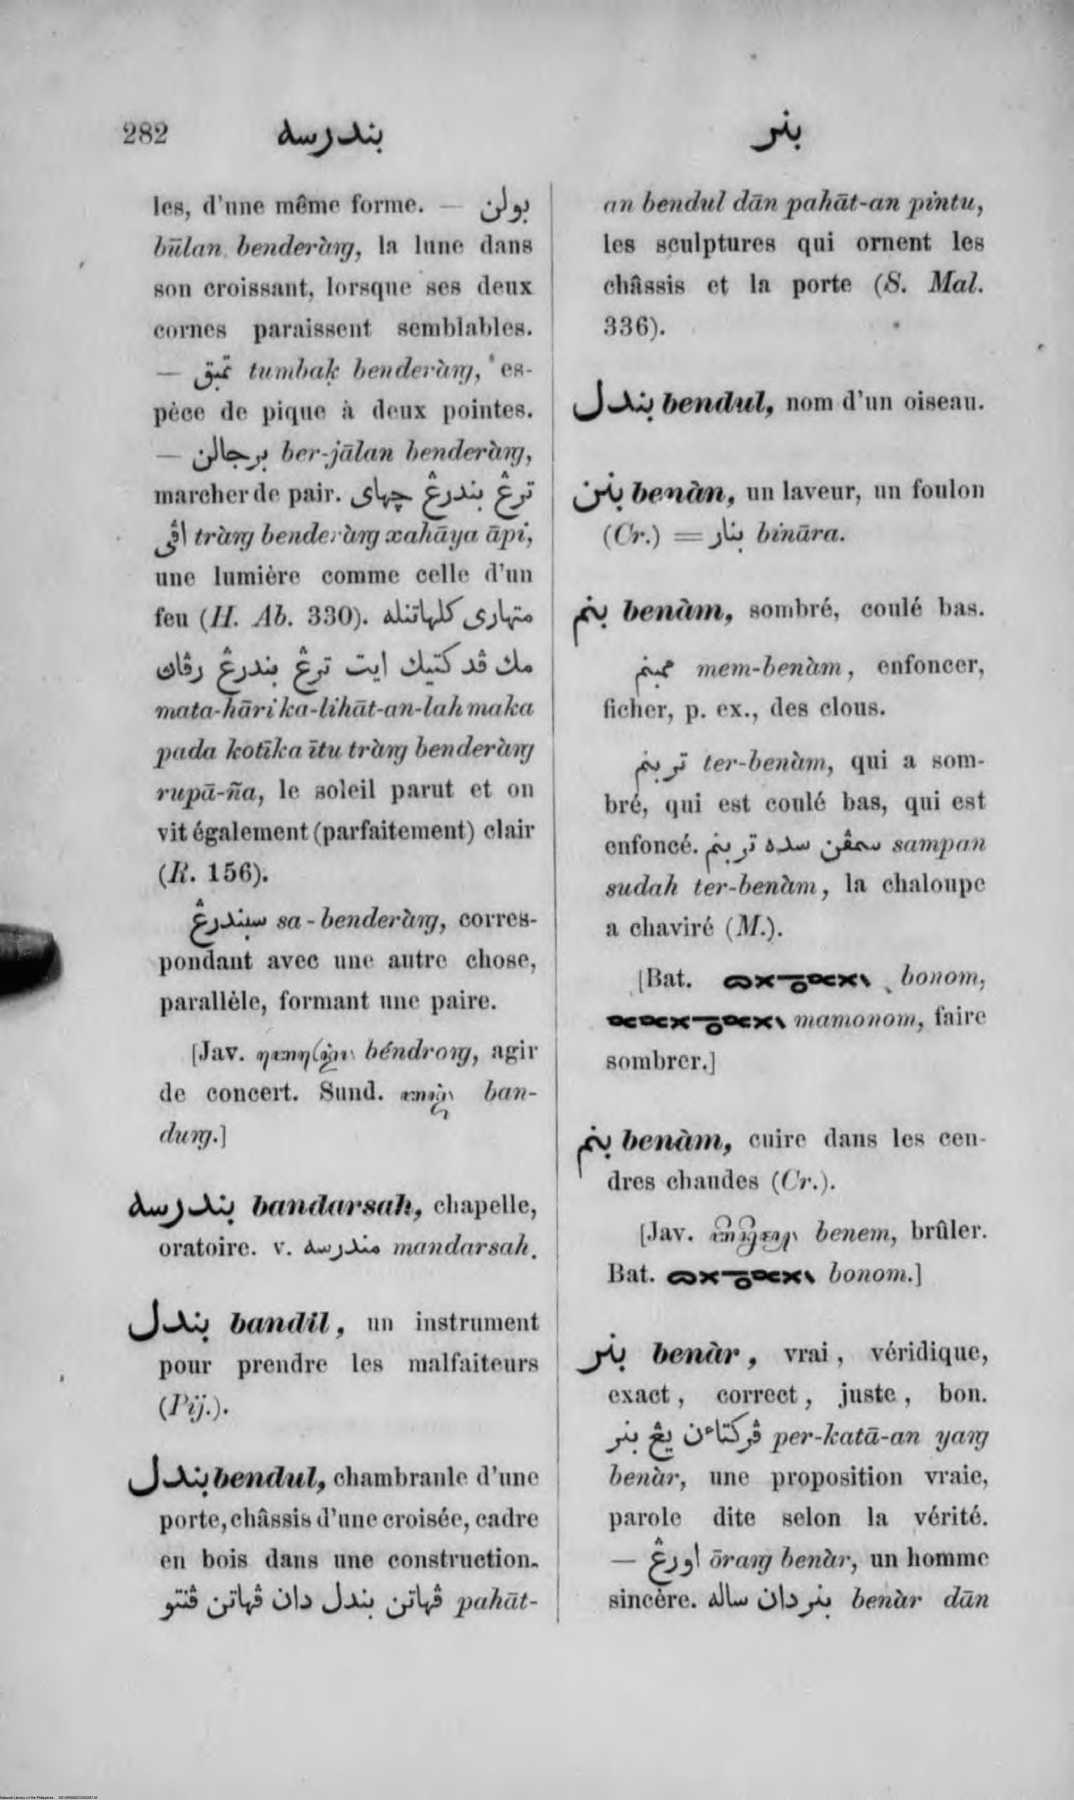 282
بندرسه
بنر
les, d'une même forme. — بولن
būlan benderàrg, la lune dans
son croissant, lorsque ses deux
cornes paraissent semblables.
— تمبق tumbaḳ benderàrg, es-
pèce de pique à deux pointes.
— برجالن ber-jālan benderàrg,
marcher de pair. ترڠ بندرڠ چهاي
اڤي tràrg benderàrg xahāya āpi,
une lumière comme celle d'un
feu (H. Ab. 330). متهاري كلهاتنله
مك ڤد كتيك ايت ترڠ بندرڠ رڤاڽ
mata-hāri ka-lihāt-an-lah maka
pada kotīka ītu tràrg benderàrg
rupā-ña, le soleil parut et on
vit également (parfaitement) clair
(R. 156).
سبندرڠ sa-benderàrg, corres-
pondant avec une autre chose,
parallèle, formant une paire.
[Jav. béndrorg, agir
de concert. Sund. ban-
durg.]
بندرسه bandarsah, chapelle,
oratoire. v. مندرسه mandarsah.
بندل bandil, un instrument
pour prendre les malfaiteurs
(Pij.).
بندل bendul, chambranle d'une
porte, châssis d'une croisée, cadre
en bois dans une construction.
ڤهاتن بندل دان ڤهاتن ڤنتو pahāt-
an bendul dān pahāt-an pintu,
les sculptures qui ornent les
châssis et la porte (S. Mal.
336).
بندل bendul, nom d'un oiseau.
بنن benàn, un laveur, un foulon
(Cr.) = بنار bināra.
بنم benàm, sombré, coulé bas.
ممبنم mem-benàm, enfoncer,
ficher, p. ex., des clous.
تربنم ter-benàm, qui a som-
bré, qui est coulé bas, qui est
enfoncé. سمڤن سده تربنم sampan
sudah ter-benàm, la chaloupe
a chaviré (M.).
[Bat. bonom,
mamonom, faire
sombrer.]
بنم benàm, cuire dans les cen-
dres chaudes (Cr.).
[Jav. benem, brûler.
Bat. bonom.]
بنر benàr, vrai, véridique,
exact, correct, juste, bon.
ڤركتاءن يڠ بنر per-katā-an yarg
benàr, une proposition vraie,
parole dite selon la vérité.
— اورڠ ōrarg benàr, un homme
sincère. بنر دان ساله benàr dān